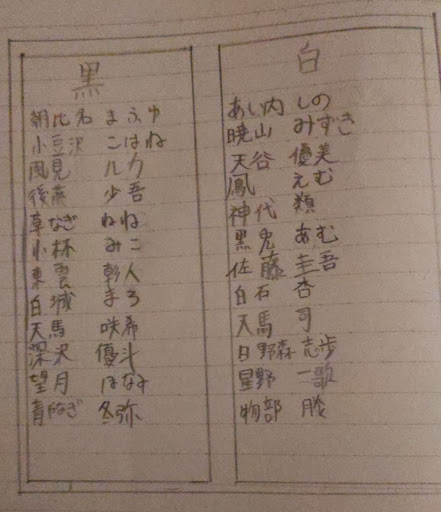 黒
朝比名 まふゆ
小豆沢 こはね
風見 ルカ
後藤 少吾
草なぎ ねね
小林 みこ
東雲 彰人
白城 まろ
天馬 咲希
深沢 優斗
望月 ほなみ
青なぎ 冬弥
白
あい内 しの
暁山 みずき
天谷 優美
鳳 えむ
神代 類
黒兎 あむ
佐藤 圭吾
白石 杏
天馬 司
日野森 志歩
星野 一歌
物部